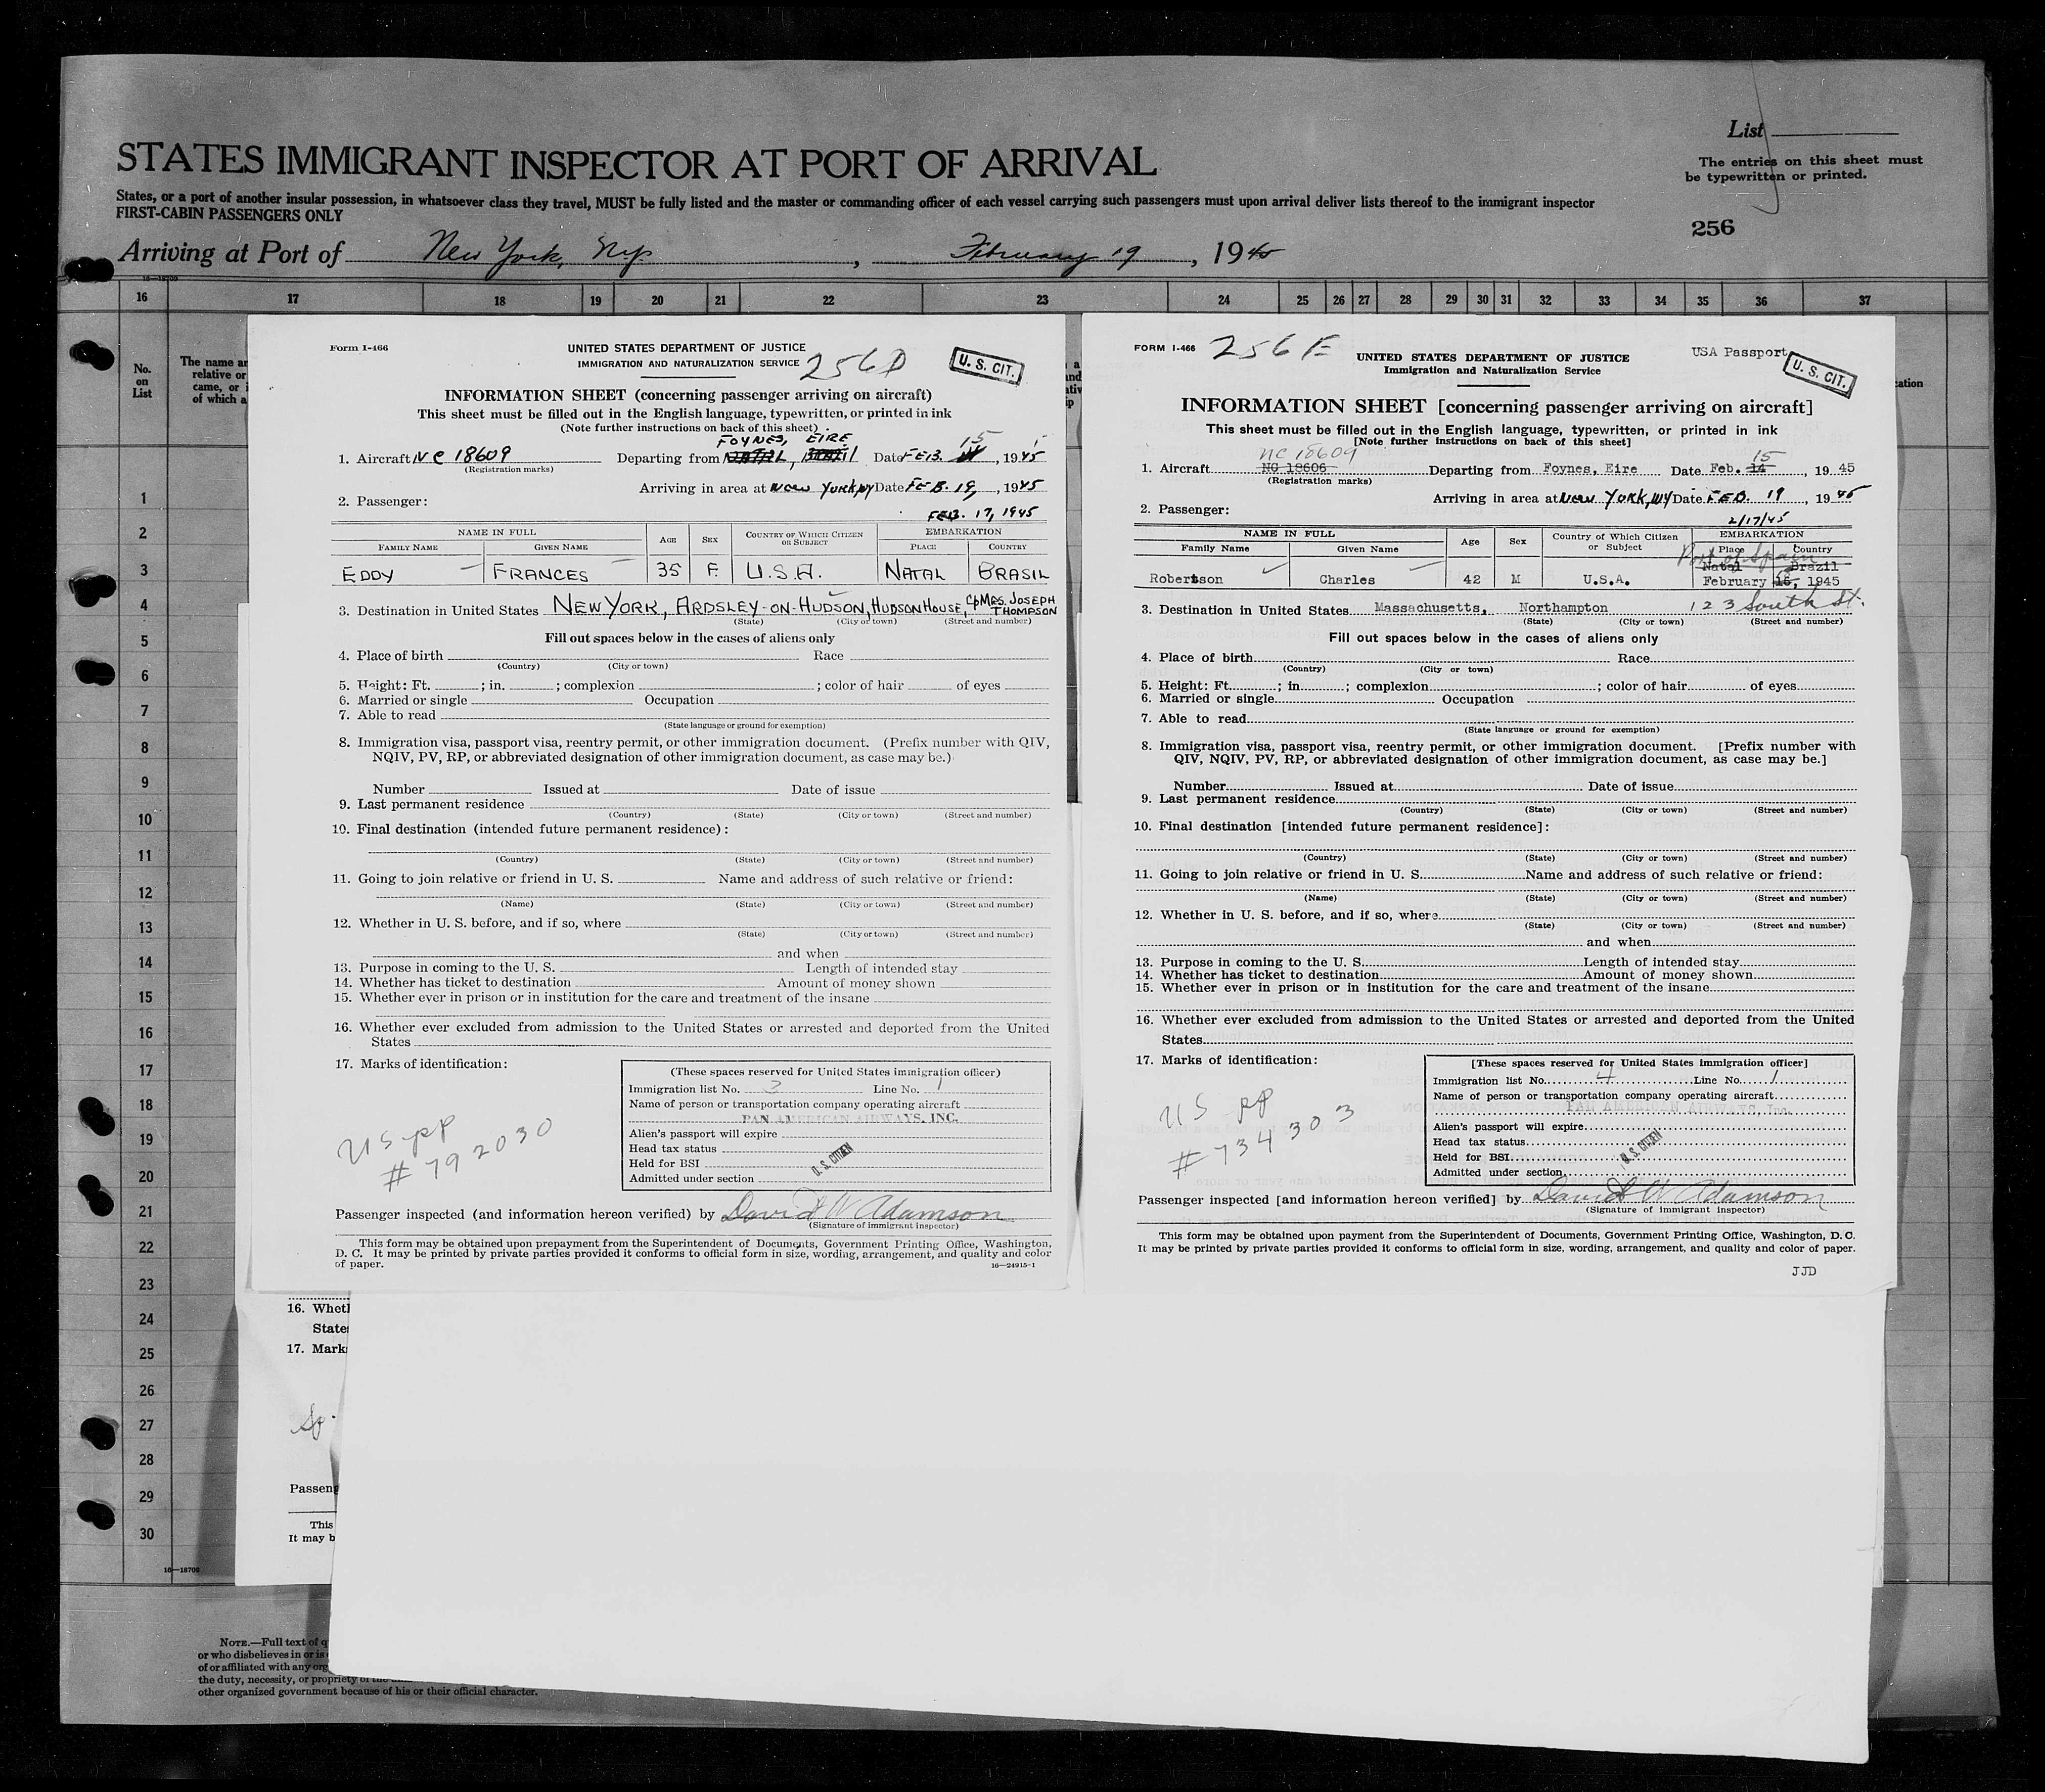 List
STATES IMMIGRANT INSPECTOR AT PORT OF ARRIVAL
The entries on this sheet must
be typewritten or printed.
States, or a port of another insular possession, in whatsoever class they travel, MUST be fully listed and the master or commanding officer of each vessel carrying such passengers must upon arrival deliver lists thereof to the immigrant inspector
FIRST-CABIN PASSENGERS ONLY
256
Arriving at Port of New York, Ny, February 19, 1945
16—18709
16 17 18 19 20 21 22 23 24 25 26 27 28 29 30 31 32 33 34 35 36 37
No.
on
List
The name an
relative or
came, or i
of which a
1
2
3
4
5
6
7
8
9
10
11
12
13
14
15
16
17
18
19
20
21
22
23
24
25
26
27
28
29
30
16—18709
Form I-466
UNITED STATES DEPARTMENT OF JUSTICE
IMMIGRATION AND NATURALIZATION SERVICE
256D
U. S. CIT.
INFORMATION SHEET (concerning passenger arriving on aircraft)
This sheet must be filled out in the English language, typewritten, or printed in ink
(Note further instructions on back of this sheet)
FOYNES, EIRE 15
1. Aircraft NC 18609 Departing from NATAL, BRAZIL Date FEB. , 1945
(Registration marks)
Arriving in area at New York, NY Date FEB. 19, 1945
2. Passenger:
FEB. 17, 1945
NAME IN FULL AGE SEX COUNTRY OF WHICH CITIZEN OR SUBJECT EMBARKATION
FAMILY NAME GIVEN NAME PLACE COUNTRY
EDDY FRANCES 35 F. U.S.A. NATAL BRASIL
3. Destination in United States NEW YORK, ARDSLEY-ON-HUDSON, HUDSON HOUSE, C/o MRS. JOSEPH THOMPSON
(State) (City or town) (Street and number)
Fill out spaces below in the cases of aliens only
4. Place of birth Race
(Country) (City or town)
5. Height: Ft. ; in. ; complexion ; color of hair of eyes
6. Married or single Occupation
7. Able to read
(State language or ground for exemption)
8. Immigration visa, passport visa, reentry permit, or other immigration document. (Prefix number with QIV,
NQIV, PV, RP, or abbreviated designation of other immigration document, as case may be.)
Number Issued at Date of issue
9. Last permanent residence
(Country) (State) (City or town) (Street and number)
10. Final destination (intended future permanent residence):
(Country) (State) (City or town) (Street and number)
11. Going to join relative or friend in U. S. Name and address of such relative or friend:
(Name) (State) (City or town) (Street and number)
12. Whether in U. S. before, and if so, where
(State) (City or town) (Street and number)
and when
13. Purpose in coming to the U. S. Length of intended stay
14. Whether has ticket to destination Amount of money shown
15. Whether ever in prison or in institution for the care and treatment of the insane
16. Whether ever excluded from admission to the United States or arrested and deported from the United
States
17. Marks of identification:
US pp
# 792030
(These spaces reserved for United States immigration officer)
Immigration list No. 3 Line No. 1
Name of person or transportation company operating aircraft
PAN AMERICAN AIRWAYS, INC.
Alien's passport will expire
Head tax status
Held for BSI
U. S. CITIZEN
Admitted under section
Passenger inspected (and information hereon verified) by David W Adamson
(Signature of immigrant inspector)
This form may be obtained upon prepayment from the Superintendent of Documents, Government Printing Office, Washington,
D. C. It may be printed by private parties provided it conforms to official form in size, wording, arrangement, and quality and color
of paper.
16—24915-1
FORM I-466
256E
USA Passport
UNITED STATES DEPARTMENT OF JUSTICE
Immigration and Naturalization Service
U. S. CIT.
INFORMATION SHEET [concerning passenger arriving on aircraft]
This sheet must be filled out in the English language, typewritten, or printed in ink
[Note further instructions on back of this sheet]
NC 18609 15
1. Aircraft NC 18606 Departing from Foynes, Eire Date Feb. 14, 1945
(Registration marks)
Arriving in area at New York, NY Date FEB. 19, 1945
2. Passenger:
2/17/45
NAME IN FULL Age Sex Country of Which Citizen or Subject EMBARKATION
Family Name Given Name Place Country
Port of Spain
Natal Brazil
Robertson Charles 42 M U.S.A. February 16, 1945
3. Destination in United States Massachusetts, Northampton 123 South St.
(State) (City or town) (Street and number)
Fill out spaces below in the cases of aliens only
4. Place of birth Race
(Country) (City or town)
5. Height: Ft. ; in. ; complexion ; color of hair of eyes
6. Married or single Occupation
7. Able to read
(State language or ground for exemption)
8. Immigration visa, passport visa, reentry permit, or other immigration document. [Prefix number with
QIV, NQIV, PV, RP, or abbreviated designation of other immigration document, as case may be.]
Number Issued at Date of issue
9. Last permanent residence
(Country) (State) (City or town) (Street and number)
10. Final destination [intended future permanent residence]:
(Country) (State) (City or town) (Street and number)
11. Going to join relative or friend in U. S. Name and address of such relative or friend:
(Name) (State) (City or town) (Street and number)
12. Whether in U. S. before, and if so, where
(State) (City or town) (Street and number)
and when
13. Purpose in coming to the U. S. Length of intended stay
14. Whether has ticket to destination Amount of money shown
15. Whether ever in prison or in institution for the care and treatment of the insane
16. Whether ever excluded from admission to the United States or arrested and deported from the United
States
17. Marks of identification:
US pp
# 734303
[These spaces reserved for United States immigration officer]
Immigration list No. 4 Line No. 1
Name of person or transportation company operating aircraft
Alien's passport will expire
Head tax status
Held for BSI
U. S. CITIZEN
Admitted under section
Passenger inspected [and information hereon verified] by David W Adamson
(Signature of immigrant inspector)
This form may be obtained upon payment from the Superintendent of Documents, Government Printing Office, Washington, D. C.
It may be printed by private parties provided it conforms to official form in size, wording, arrangement, and quality and color of paper.
JJD
16. Wheth
States
17. Mark
Passeng
This
It may b
NOTE.—Full text of q
or who disbelieves in or is
of or affiliated with any org
the duty, necessity, or propriety of the
other organized government because of his or their official character.